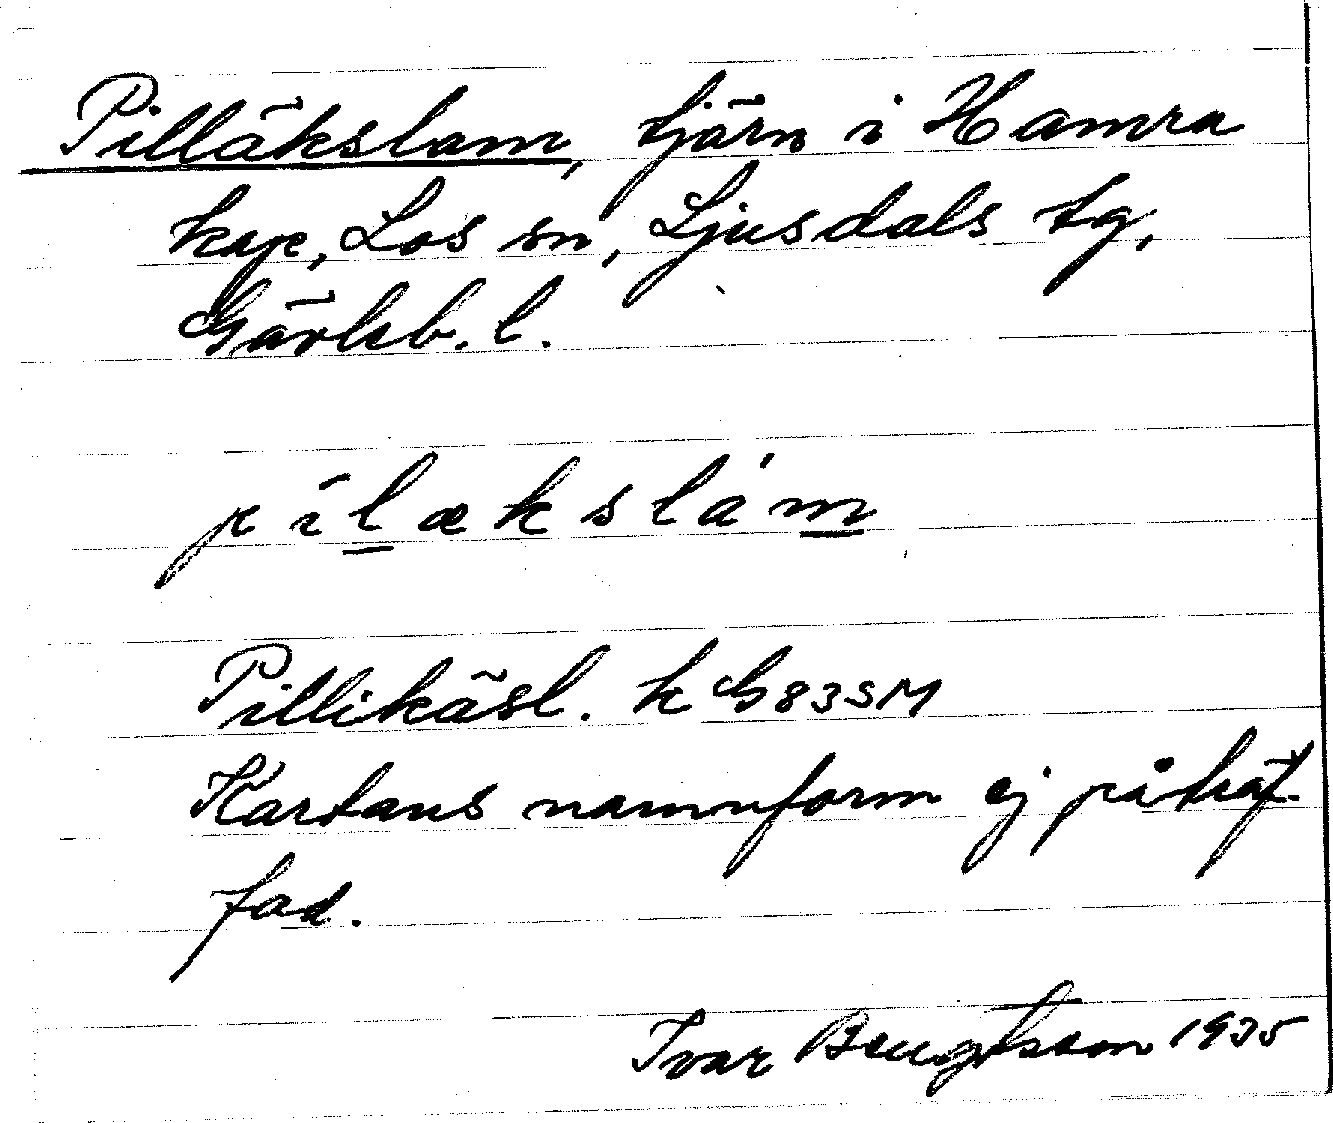 Pilläkslam, tjärn i Hamra
kap, Los sn, Ljusdals tg,
Gävleb. l.
pílækslá'm
Pillikäsl. k G83SM
Kartans namnform ej påträf-
fad.
Ivar Bengtsson 1935